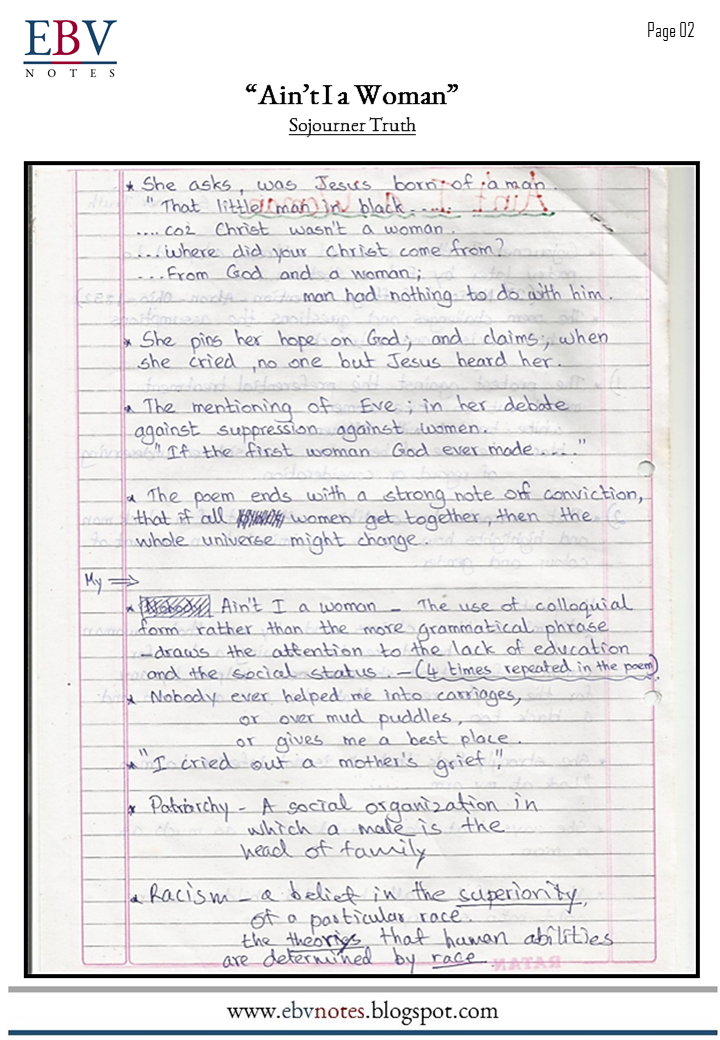 EBV
NOTES
Page 02
"Ain't I a Woman"
Sojourner Truth
* She asks, was Jesus born of a man.
"That little man in black.....
....coz Christ wasn't a woman.
...where did your Christ come from?
...From God and a woman;
man had nothing to do with him.
* She pins her hope on God; and claims; when
she cried, no one but Jesus heard her.
* The mentioning of Eve; in her debate
against suppression against women.
"If the first woman God ever made....."
* The poem ends with a strong note off conviction,
that if all women get together, then the
whole universe might change.
My ⇒
* Ain't I a woman - The use of colloquial
form rather than the more grammatical phrase
- draws the attention to the lack of education
and the social status. - (4 times repeated in the poem)
* Nobody ever helped me into carriages,
or over mud puddles,
or gives me a best place.
* "I cried out a mother's grief".
* Patriarchy - A social organization in
which a male is the
head of family
* Racism - a belief in the superiority,
of a particular race.
the theories that human abilities
are determined by race.
RATAN
www.ebvnotes.blogspot.com